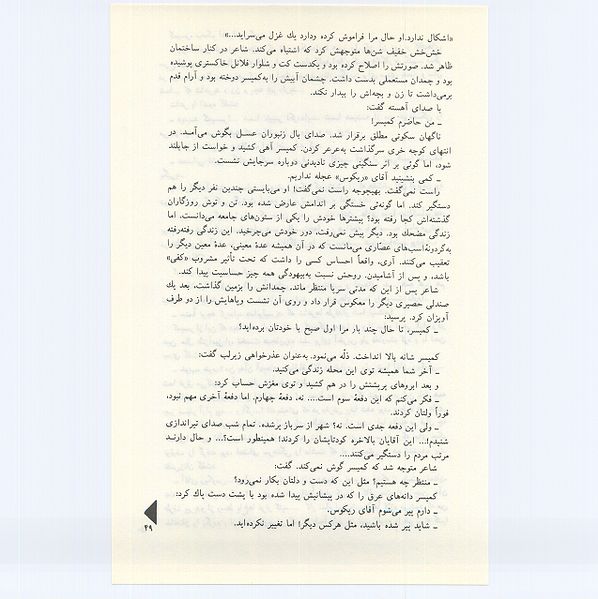 «اشکال ندارد. او حال مرا فراموش کرده ودارد یك غزل می‌سراید...»
خش‌خش خفیف شن‌ها متوجهش کرد که اشتباه می‌کند. شاعر در کنار ساختمان
ظاهر شد. صورتش را اصلاح کرده بود و یکدست کت و شلوار فلانل خاکستری پوشیده
بود و چمدان مستعملی بدست داشت. چشمان آبیش را به‌کمیسر دوخته بود و آرام قدم
برمی‌داشت تا زن و بچه‌اش را بیدار نکند.
با صدای آهسته گفت:
ـ من حاضرم کمیسر!
ناگهان سکوتی مطلق برقرار شد. صدای بال زنبوران عسل بگوش می‌آمد. در
انتهای کوچه خری سرگذاشت به‌عرعر کردن. کمیسر آهی کشید و خواست از جابلند
شود، اما گوئی بر اثر سنگینی چیزی نادیدنی دوباره سرجایش نشست.
ـ کمی بنشینید آقای «ریکوس» عجله نداریم.
راست نمی‌گفت. بهیچوجه راست نمی‌گفت! او می‌بایستی چندین نفر دیگر را هم
دستگیر کند. اما گونه‌ئی خستگی بر اندامش عارض شده بود. تن و توش روزگاران
گذشته‌اش کجا رفته بود؟ پیشترها خودش را یکی از ستون‌های جامعه می‌دانست. اما
زندگی مضحك بود. دیگر پیش نمی‌رفت، دور خودش می‌چرخید. این زندگی رفته‌رفته
به‌گردونهٔ‌اسب‌های عصّاری می‌مانست که در آن همیشه عدهٔ معینی، عدهٔ معین دیگر را
تعقیب می‌کنند. آری، واقعاً احساس کسی را داشت که تحت تأثیر مشروب «کفی»
باشد، و پس از آشامیدن، روحش نسبت به‌بیهودگی همه چیز حساسیت پیدا کند.
شاعر پس از این که مدتی سرپا منتظر ماند، چمدانش را بزمین گذاشت، بعد یك
صندلی حصیری دیگر را معکوس قرار داد و روی آن نشست وپاهایش را از دو طرف
آویزان کرد. پرسید:
ـ کمیسر، تا حال چند بار مرا اول صبح با خودتان برده‌اید؟
کمیسر شانه بالا انداخت. ذلّه می‌نمود. به‌عنوان عذرخواهی زیرلب گفت:
ـ آخر شما همیشه توی این محله زندگی می‌کنید.
و بعد ابروهای پرپشتش را در هم کشید و توی مغزش حساب کرد:
ـ فکر می‌کنم که این دفعهٔ سوم است.... نه، دفعهٔ چهارم. اما دفعهٔ آخری مهم نبود،
فوراً ولتان کردند.
ـ ولی این دفعه جدی است، نه؟ شهر از سرباز پرشده. تمام شب صدای تیراندازی
شنیدم!... این آقایان بالاخره کودتایشان را کردند! همینطور است؟... و حال دارنـد
مرتب مردم را دستگیر می‌کنند....
شاعر متوجه شد که کمیسر گوش نمی‌کند. گفت:
ـ منتظر چه هستیم؟ مثل این که دست و دلتان بکار نمی‌رود؟
کمیسر دانه‌های عرق را که در پیشانیش پیدا شده بود با پشت دست پاك کرد:
ـ دارم پیر می‌شوم آقای ریکوس.
ـ شاید پیر شده باشید، مثل هرکس دیگر! اما تغییر نکرده‌اید.
۴۹